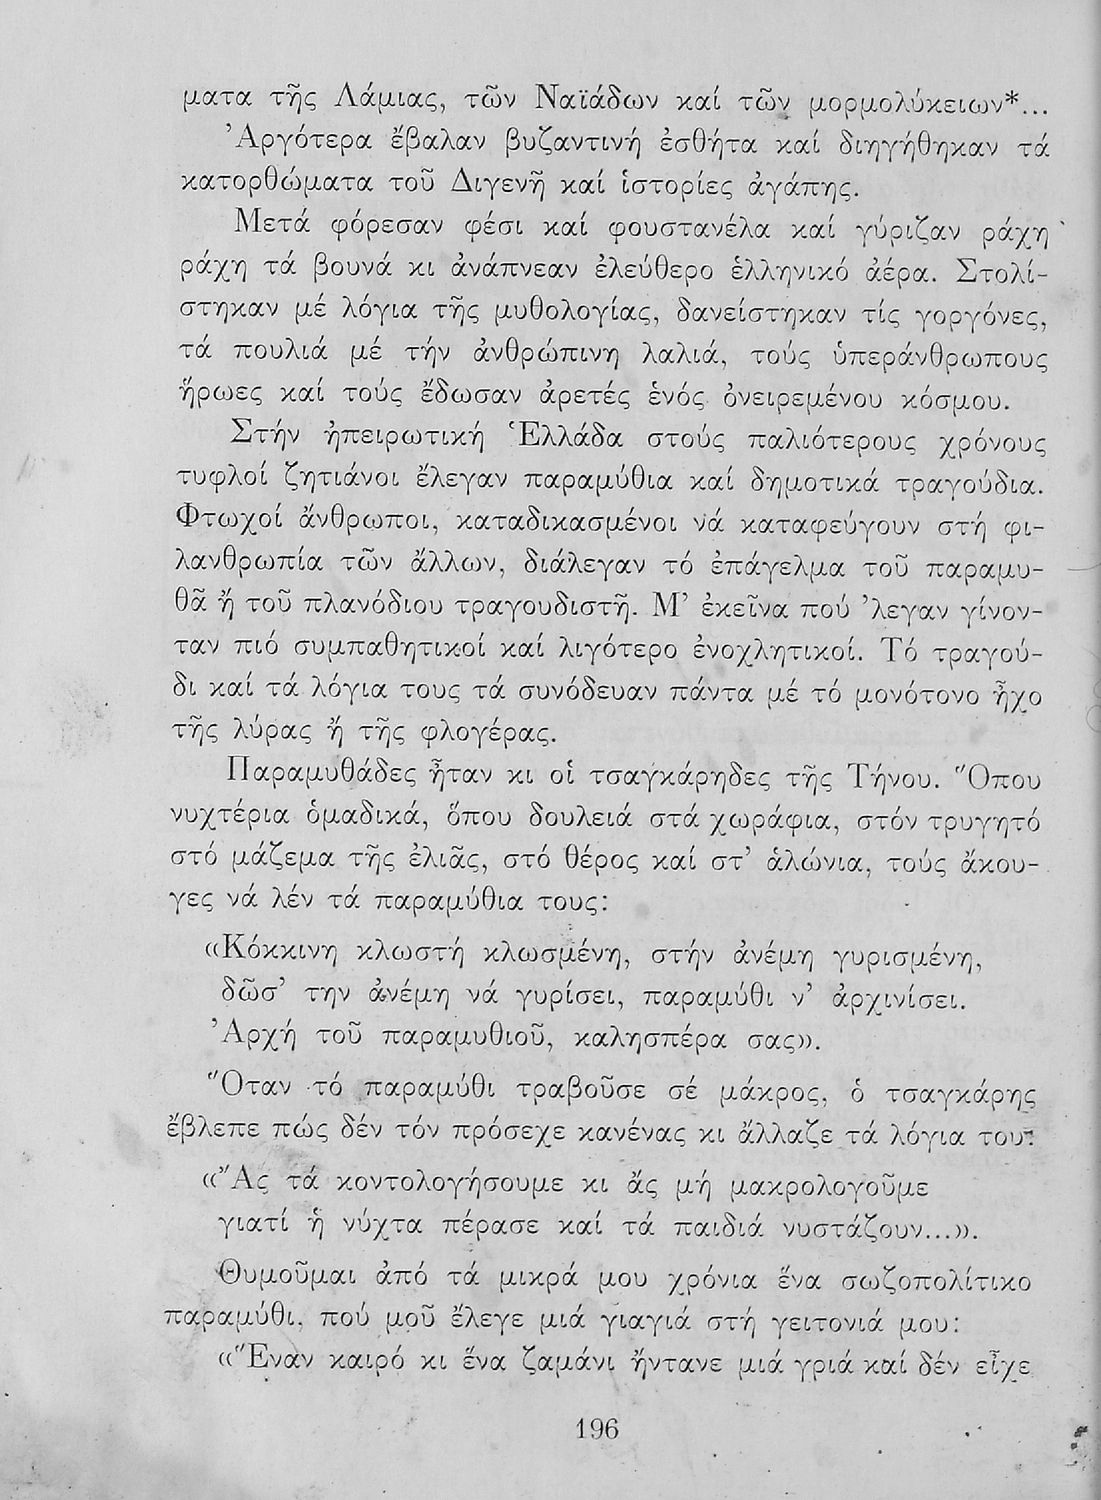 ματα τῆς Λάμιας, τῶν Ναϊάδων καί τῶν μορμολύκειων*...
Ἀργότερα ἔβαλαν βυζαντινή ἐσθήτα καί διηγήθηκαν τά
κατορθώματα τοῦ Διγενῆ καί ἱστορίες ἀγάπης.
Μετά φόρεσαν φέσι καί φουστανέλα καί γύριζαν ράχη
ράχη τά βουνά κι ἀνάπνεαν ἐλεύθερο ἑλληνικό ἀέρα. Στολί-
στηκαν μέ λόγια τῆς μυθολογίας, δανείστηκαν τίς γοργόνες,
τά πουλιά μέ τήν ἀνθρώπινη λαλιά, τούς ὑπεράνθρωπους
ἥρωες καί τούς ἔδωσαν ἀρετές ἑνός ὀνειρεμένου κόσμου.
Στήν ἠπειρωτική Ἑλλάδα στούς παλιότερους χρόνους
τυφλοί ζητιάνοι ἔλεγαν παραμύθια καί δημοτικά τραγούδια.
Φτωχοί ἄνθρωποι, καταδικασμένοι νά καταφεύγουν στή φι-
λανθρωπία τῶν ἄλλων, διάλεγαν τό ἐπάγελμα τοῦ παραμυ-
θᾶ ἤ τοῦ πλανόδιου τραγουδιστῆ. Μ' ἐκεῖνα πού 'λεγαν γίνον-
ταν πιό συμπαθητικοί καί λιγότερο ἐνοχλητικοί. Τό τραγού-
δι καί τά λόγια τους τά συνόδευαν πάντα μέ τό μονότονο ἦχο
τῆς λύρας ἤ τῆς φλογέρας.
Παραμυθάδες ἦταν κι οἱ τσαγκάρηδες τῆς Τήνου. Ὅπου
νυχτέρια ὁμαδικά, ὅπου δουλειά στά χωράφια, στόν τρυγητό
στό μάζεμα τῆς ἐλιᾶς, στό θέρος καί στ' ἁλώνια, τούς ἄκου-
γες νά λέν τά παραμύθια τους:
«Κόκκινη κλωστή κλωσμένη, στήν ἀνέμη γυρισμένη,
δῶσ' την ἀνέμη νά γυρίσει, παραμύθι ν' ἀρχινίσει.
Ἀρχή τοῦ παραμυθιοῦ, καλησπέρα σας».
Ὅταν τό παραμύθι τραβοῦσε σέ μάκρος, ὁ τσαγκάρης
ἔβλεπε πώς δέν τόν πρόσεχε κανένας κι ἄλλαζε τά λόγια του:
«Ἄς τά κοντολογήσουμε κι ἄς μή μακρολογοῦμε
γιατί ἡ νύχτα πέρασε καί τά παιδιά νυστάζουν...».
Θυμοῦμαι ἀπό τά μικρά μου χρόνια ἕνα σωζοπολίτικο
παραμύθι, πού μοῦ ἔλεγε μιά γιαγιά στή γειτονιά μου:
«Ἕναν καιρό κι ἕνα ζαμάνι ἤντανε μιά γριά καί δέν εἶχε
196